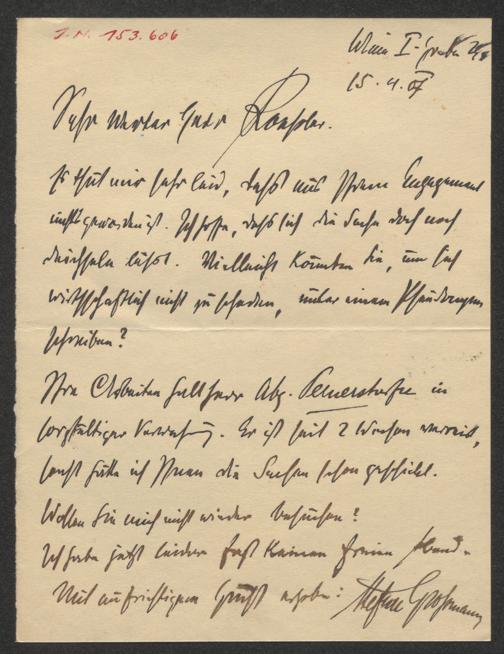 I.N. 153.606
Wien I. Graben 29
15.4.07
Sehr werter Herr Roessler.
Es thut mir sehr leid, dass aus Ihrem Engagement
nichts geworden ist. Ich hoffe, dass sich die Sache doch noch
deichseln lässt. Vielleicht könnten Sie, um sich
wirthschaftlich nicht zu schaden, unter einem Pseudonym
schreiben?
Ihre Arbeiten hält Herr Abg. Pernerstorfer in
sorgfältiger Verwahrung. Er ist seit 2 Wochen verreist,
sonst hätte ich Ihnen die Sachen schon geschickt.
Wollen Sie mich nicht wieder besuchen?
Ich habe jetzt leider fast keinen freien Abend.
Mit aufrichtigem Gruß ergeben: Stefan Großmann